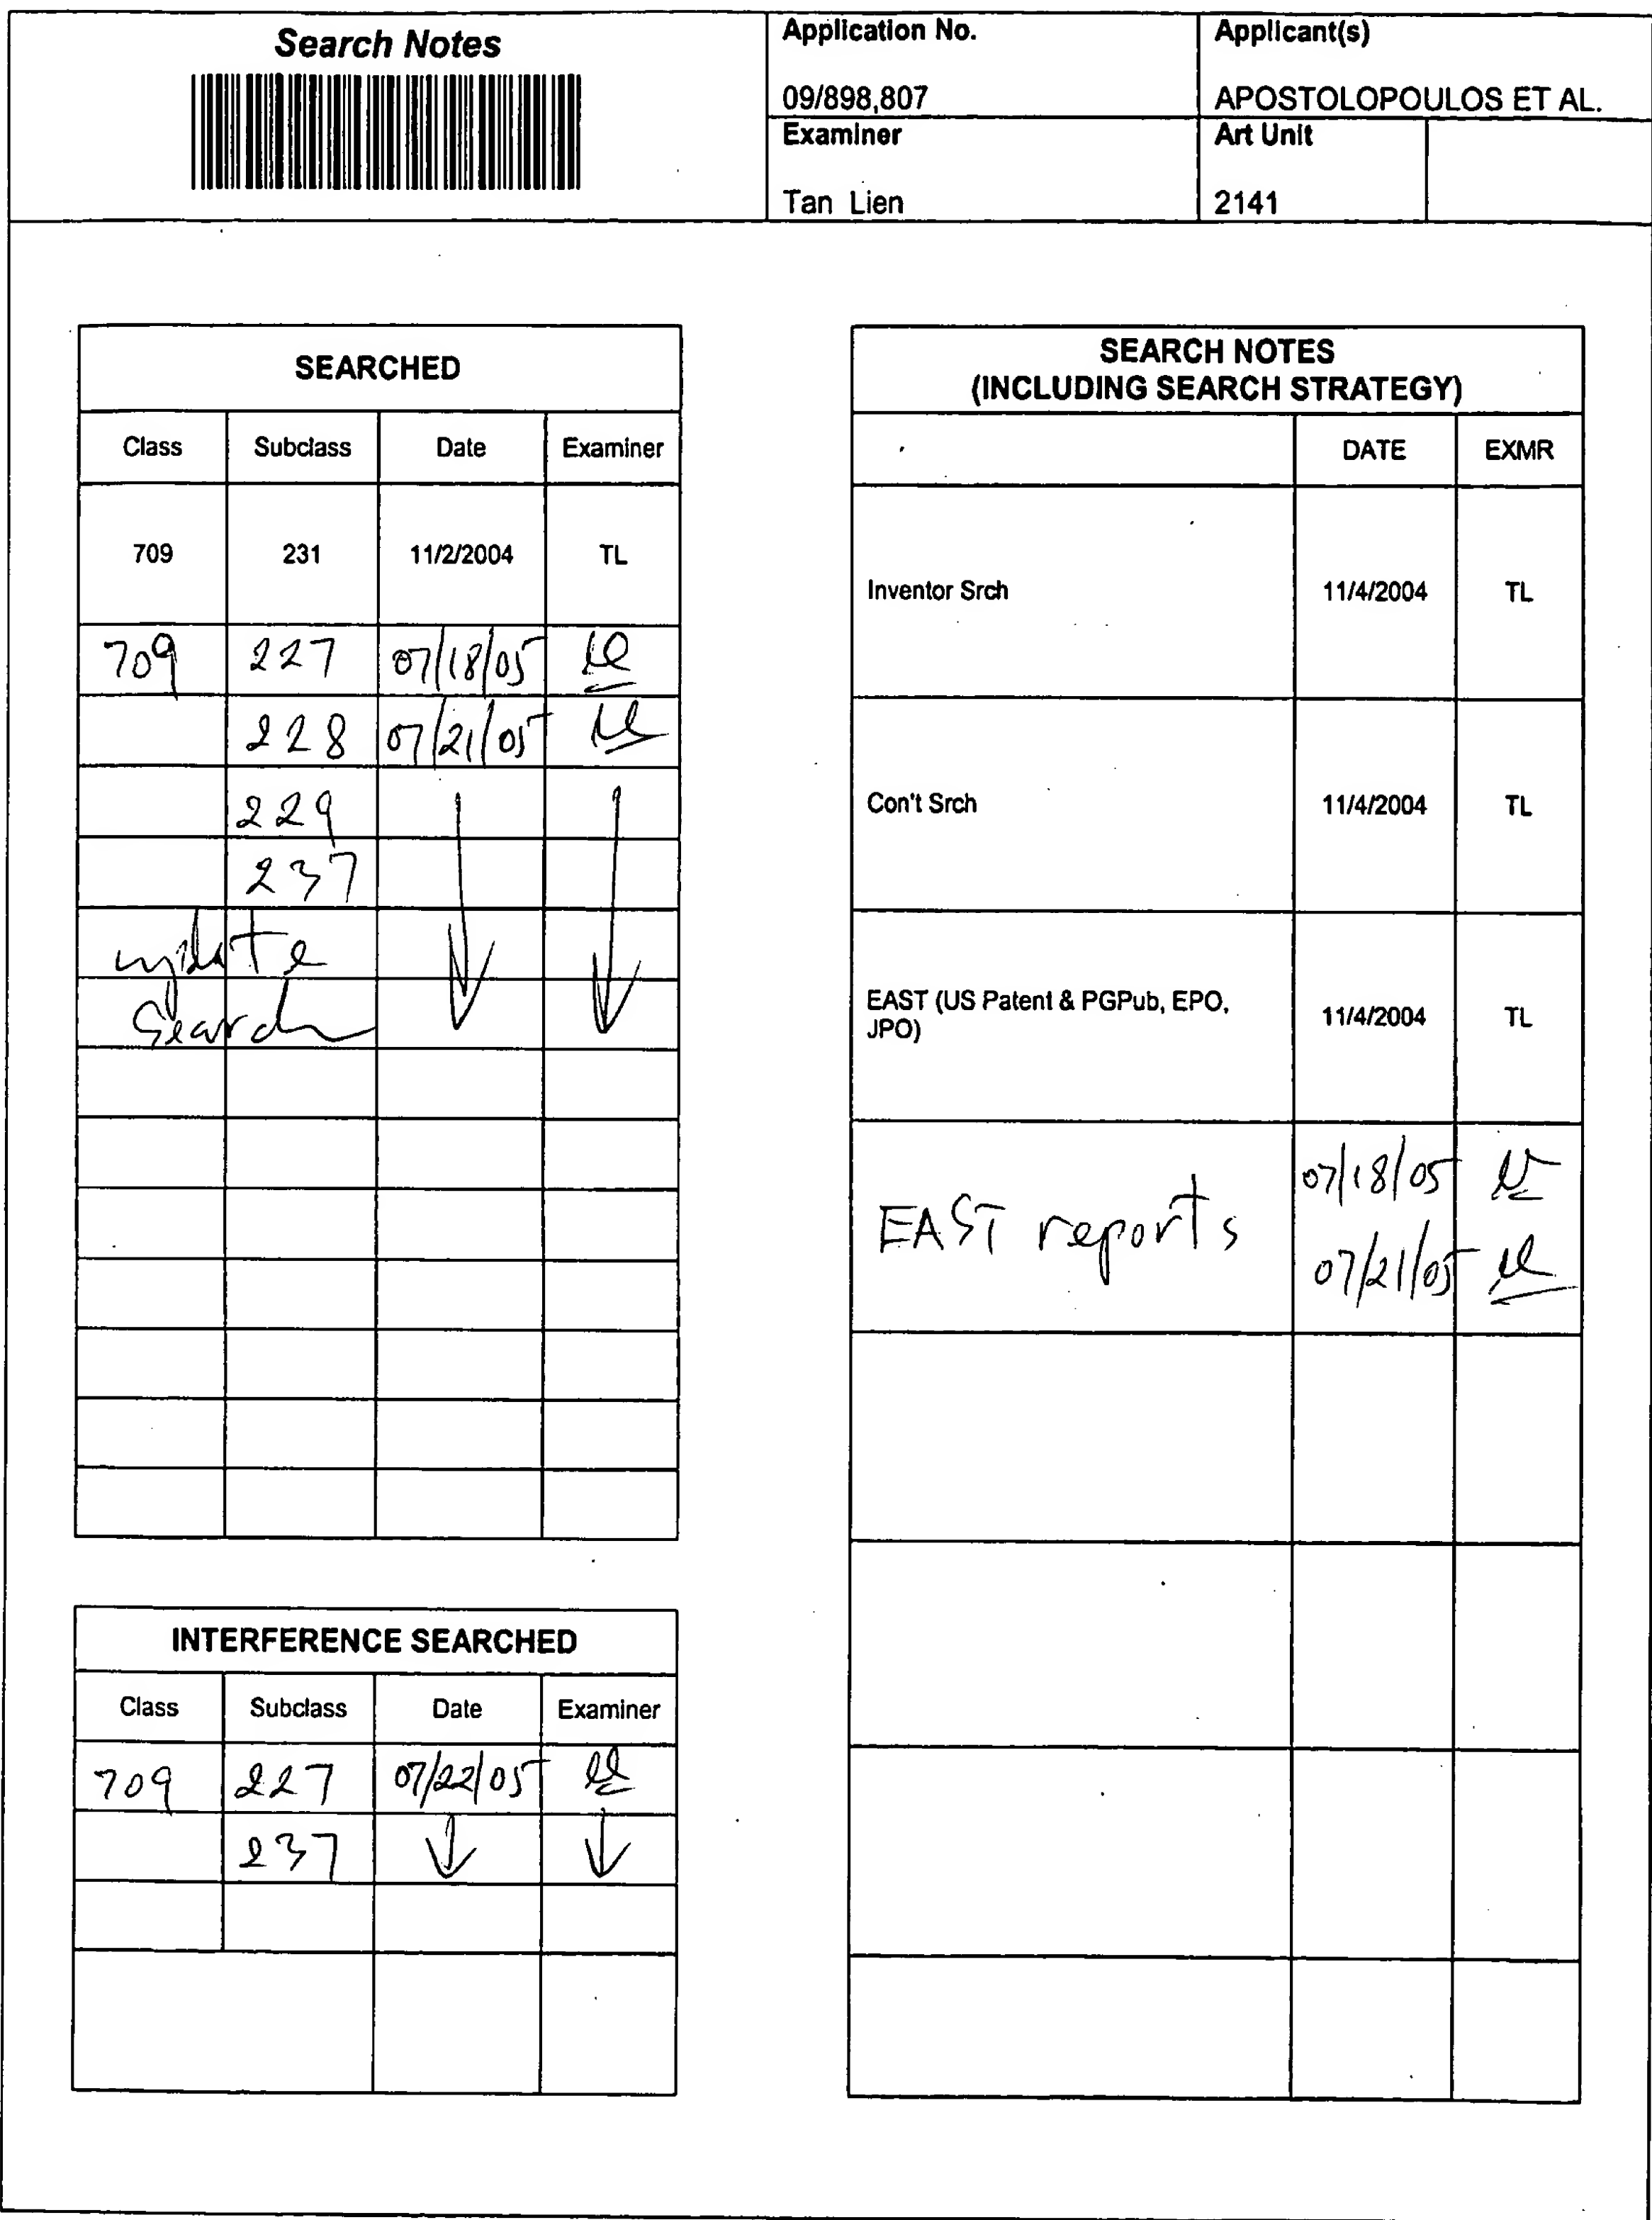 Search Notes
Application No.
09/898,807
Applicant(s)
APOSTOLOPOULOS ET AL.
Examiner
Tan Lien
Art Unit
2141
SEARCHED
Class Subclass Date Examiner
709 231 11/2/2004 TL
709 227 07/18/05
228 07/21/05
229
237
update
Search
INTERFERENCE SEARCHED
Class Subclass Date Examiner
709 227 07/22/05
237
SEARCH NOTES
(INCLUDING SEARCH STRATEGY)
DATE EXMR
Inventor Srch 11/4/2004 TL
Con't Srch 11/4/2004 TL
EAST (US Patent & PGPub, EPO,
JPO) 11/4/2004 TL
EAST reports 07/18/05
07/21/05